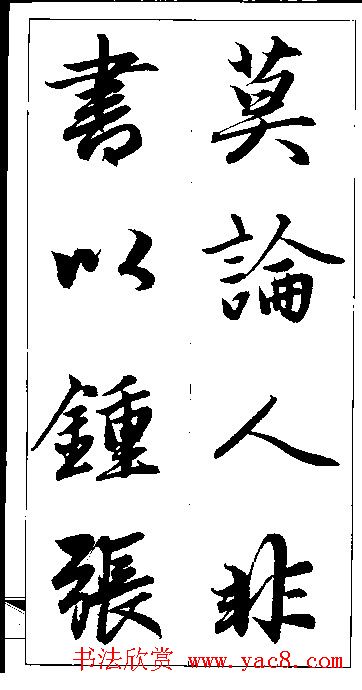 莫論人非
書以鍾張
书法欣赏 www.yac8.com